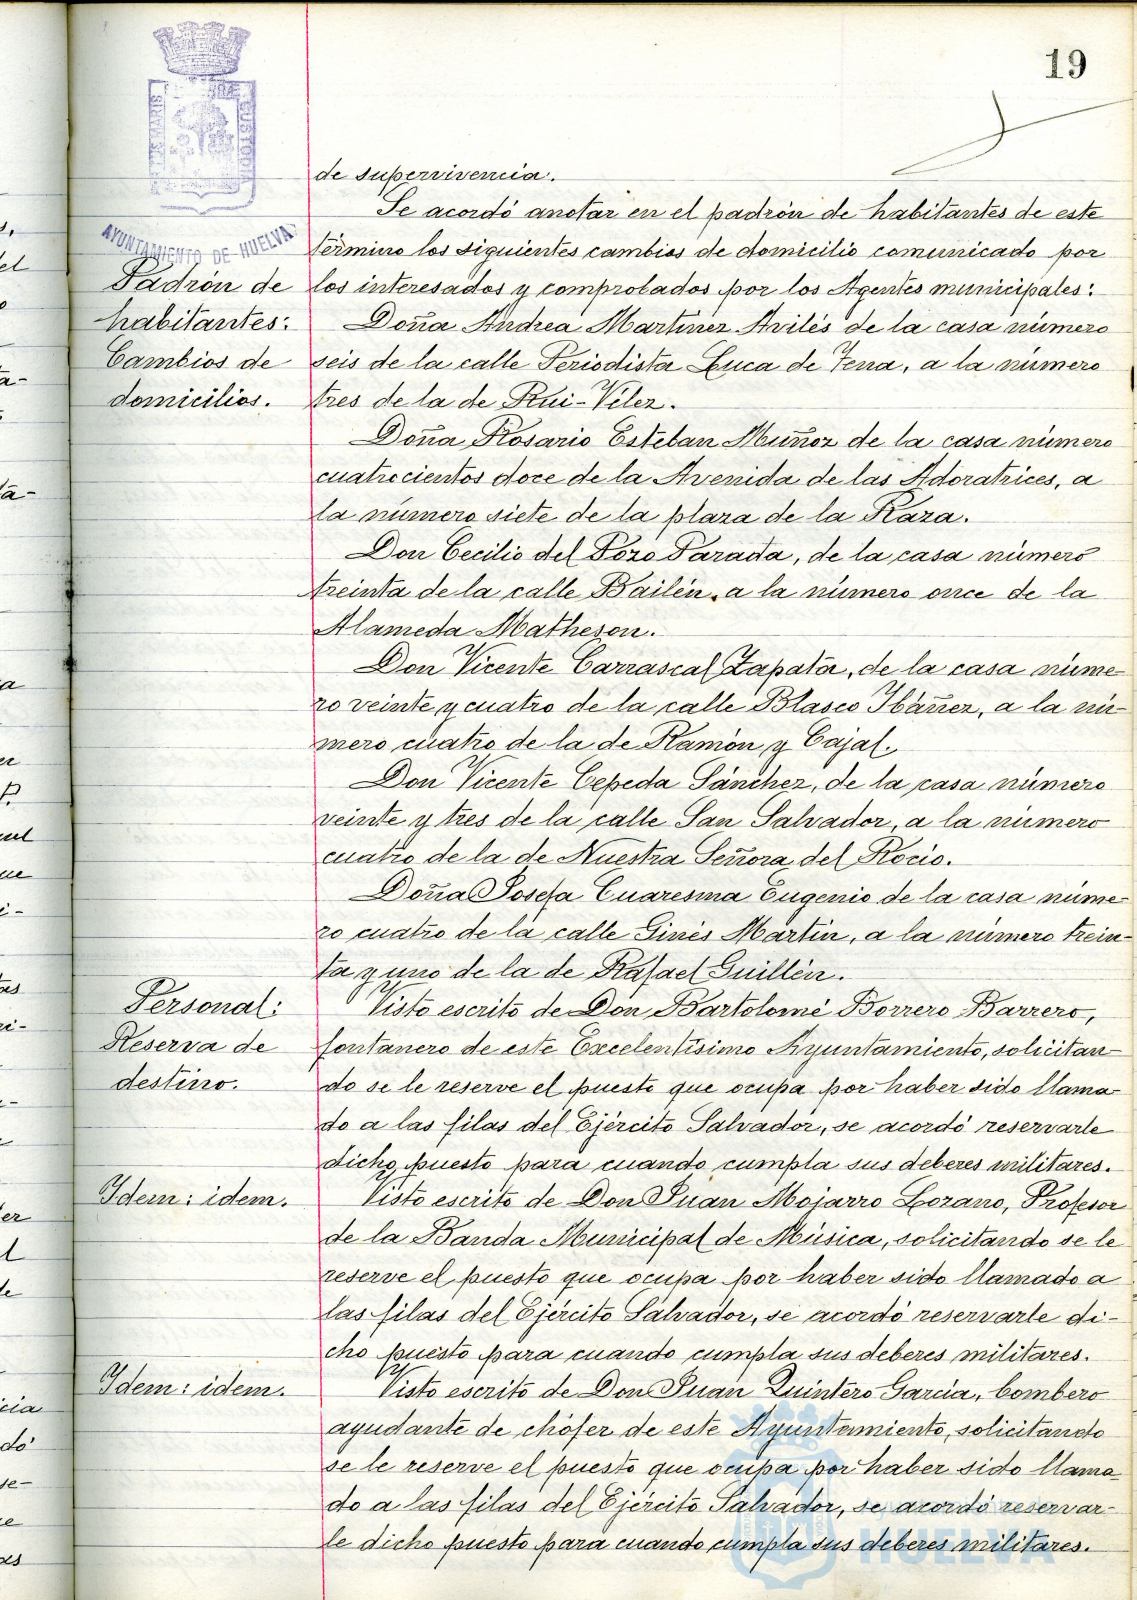 19
de supervivencia.
Se acordó anotar en el padrón de habitantes de este
AYUNTAMIENTO DE HUELVA
término los siguientes cambios de domicilio comunicado por
Padrón de
los interesados y comprobados por los Agentes municipales:
habitantes:
Doña Andrea Martinez Avilés de la casa número
Cambios de
seis de la calle Periodista Luca de Tena, a la número
domicilios.
tres de la de Rui-Vélez.
Doña Rosario Esteban Muñoz de la casa número
cuatrocientos doce de la Avenida de las Adoratrices, a
la número siete de la plaza de la Raza.
Don Cecilio del Pozo Parada, de la casa número
treinta de la calle Bailén, a la número once de la
Alameda Matheson.
Don Vicente Carrascal Zapata, de la casa núme-
ro veinte y cuatro de la calle Blasco Ibáñez, a la nú-
mero cuatro de la de Ramón y Cajal.
Don Vicente Cepeda Sánchez, de la casa número
veinte y tres de la calle San Salvador, a la número
cuatro de la de Nuestra Señora del Rocio.
Doña Josefa Cuaresma Eugenio de la casa núme-
ro cuatro de la calle Ginés Martín, a la número trein-
ta y uno de la de Rafael Guillén.
Personal:
Visto escrito de Don Bartolomé Borrero Barrero,
Reserva de
fontanero de este Excelentísimo Ayuntamiento, solicitan-
destino.
do se le reserve el puesto que ocupa por haber sido llama-
do a las filas del Ejército Salvador, se acordó reservarle
dicho puesto para cuando cumpla sus deberes militares.
Idem: idem.
Visto escrito de Don Juan Mojarro Lozano, Profesor
de la Banda Municipal de Música, solicitando se le
reserve el puesto que ocupa por haber sido llamado a
las filas del Ejército Salvador, se acordó reservarle di-
cho puesto para cuando cumpla sus deberes militares.
Idem: idem.
Visto escrito de Don Juan Quintero García, bombero
ayudante de chófer de este Ayuntamiento, solicitando
se le reserve el puesto que ocupa por haber sido llama-
do a las filas del Ejército Salvador, se acordó reservar-
le dicho puesto para cuando cumpla sus deberes militares.
HUELVA